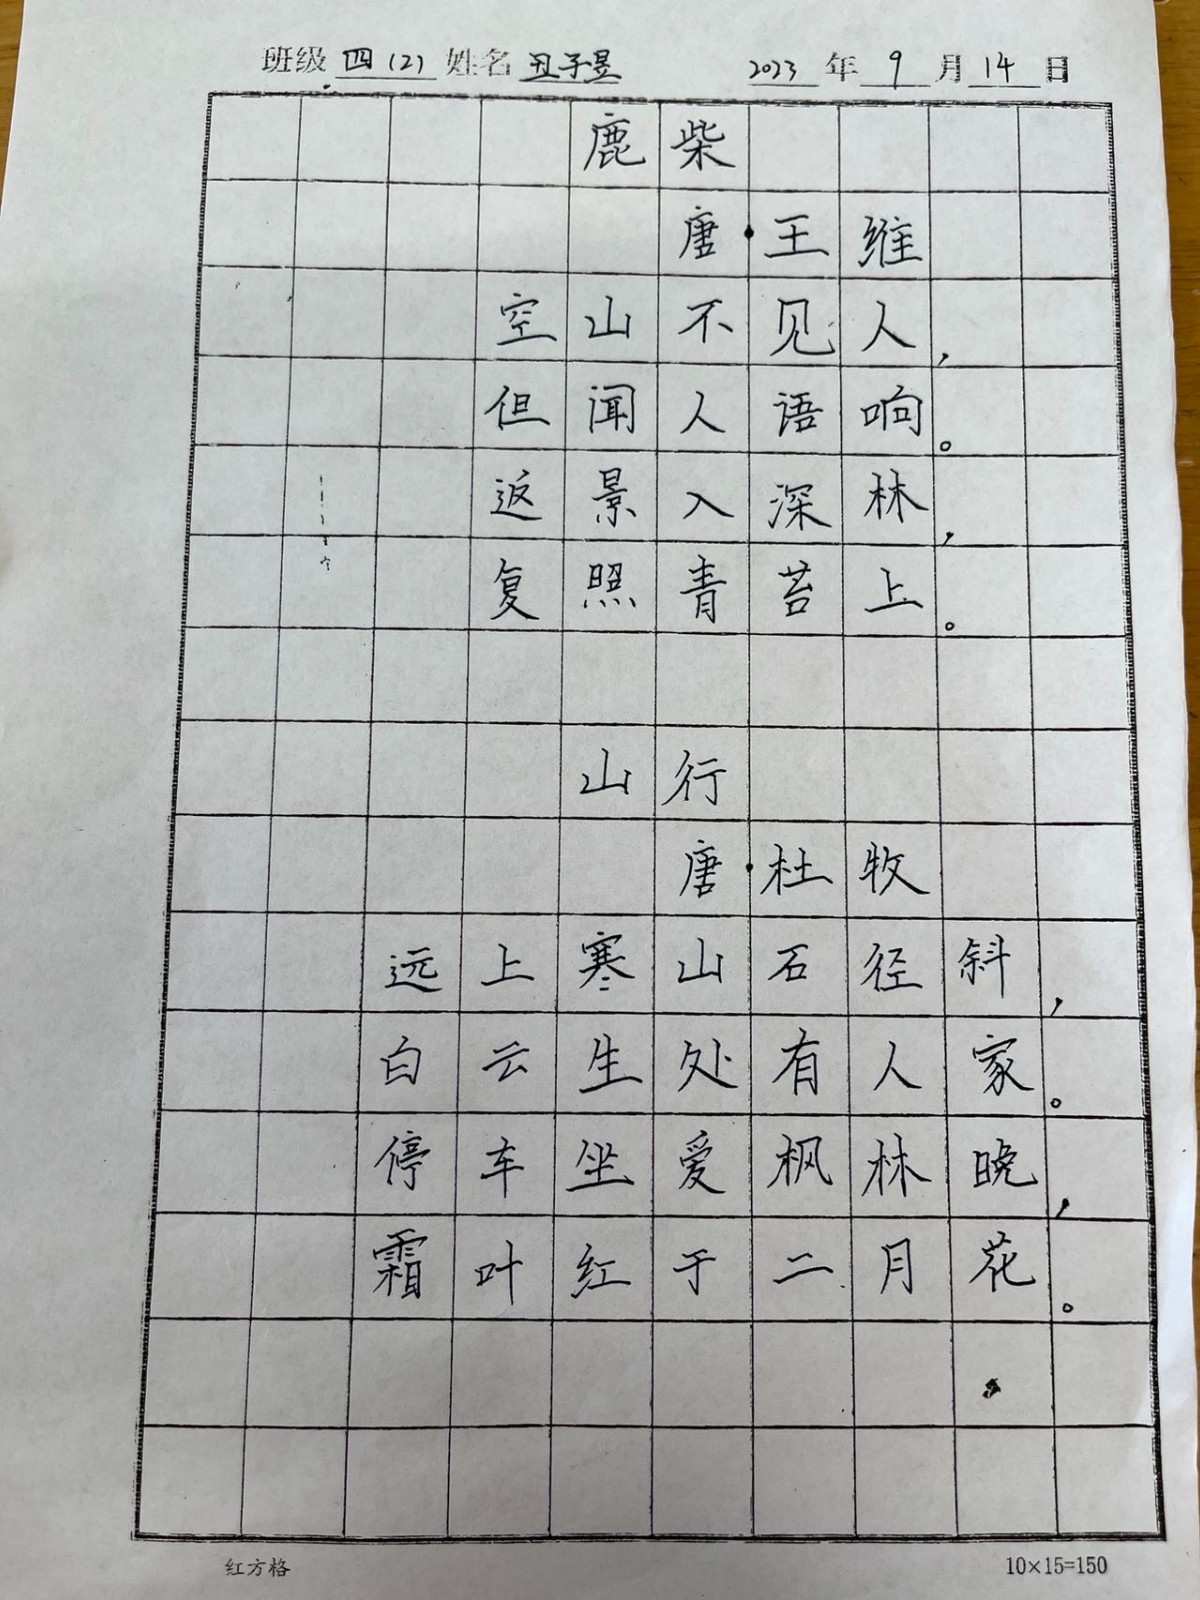 班级 四(2) 姓名 丑子昱 2023 年 9 月 14 日
鹿柴
唐·王维
空山不见人,
但闻人语响。
返景入深林,
复照青苔上。
山行
唐·杜牧
远上寒山石径斜,
白云生处有人家。
停车坐爱枫林晚,
霜叶红于二月花。
红方格 10×15=150